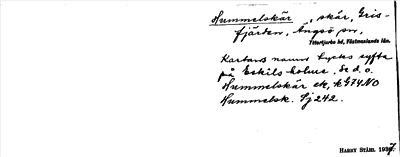 Hummelskär, skär, Gris-
fjärden, Ängsö sn,
Yttertjurbo hd, Västmanlands län.
Kartans namn tyckes syfta
på Eskils holme. Se d. o.
Hummelskär ek, k G74 NO
Hummelsk. Sj 242.
HARRY STÅHL 1937.